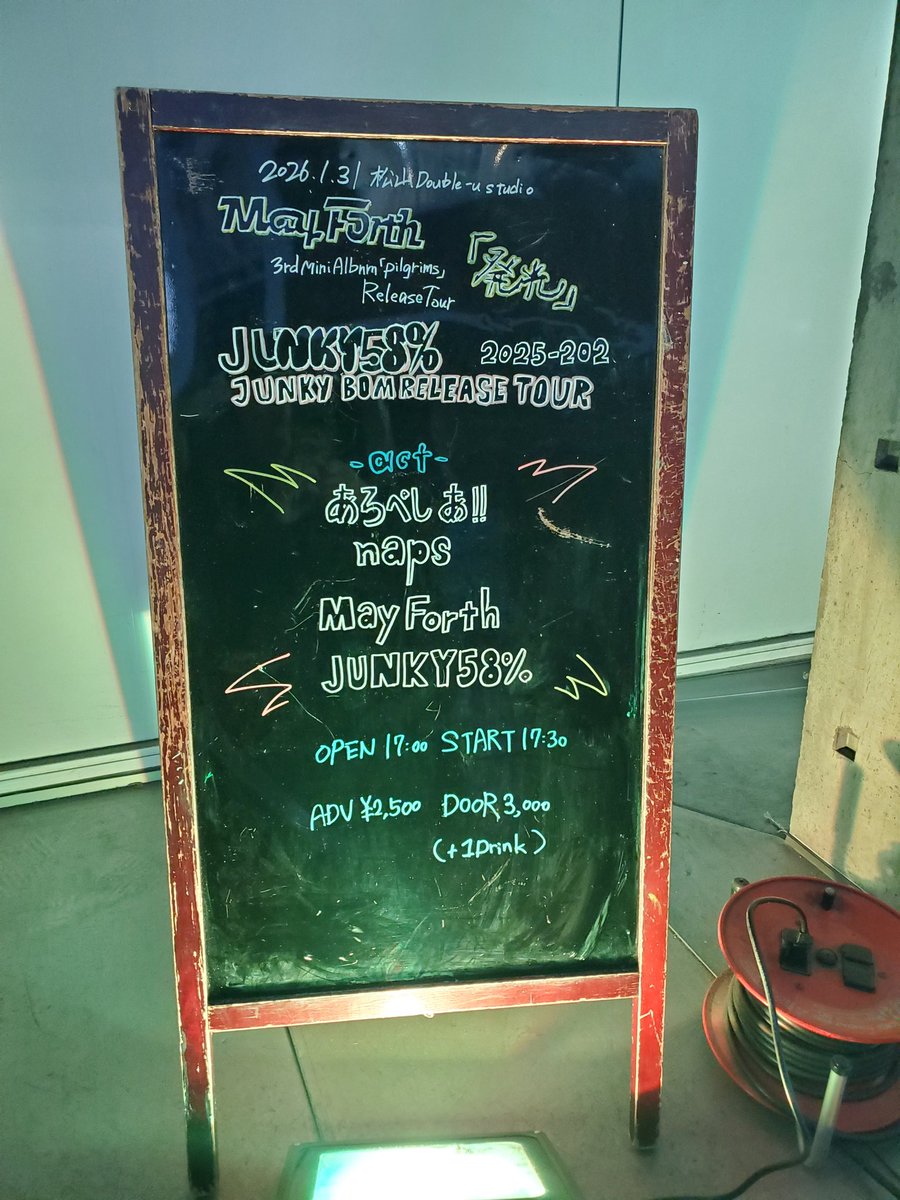 2026.1.31 松山Double-u studio
May Forth
3rd Mini Albnm「pilgrims」
Release Tour
「発光」
JUNKY58% 2025-202
JUNKY BOM RELEASE TOUR
-act-
あろぺしあ!!
naps
May Forth
JUNKY58%
OPEN 17:00 START 17:30
ADV ¥2,500 DOOR 3,000
(+1Drink)